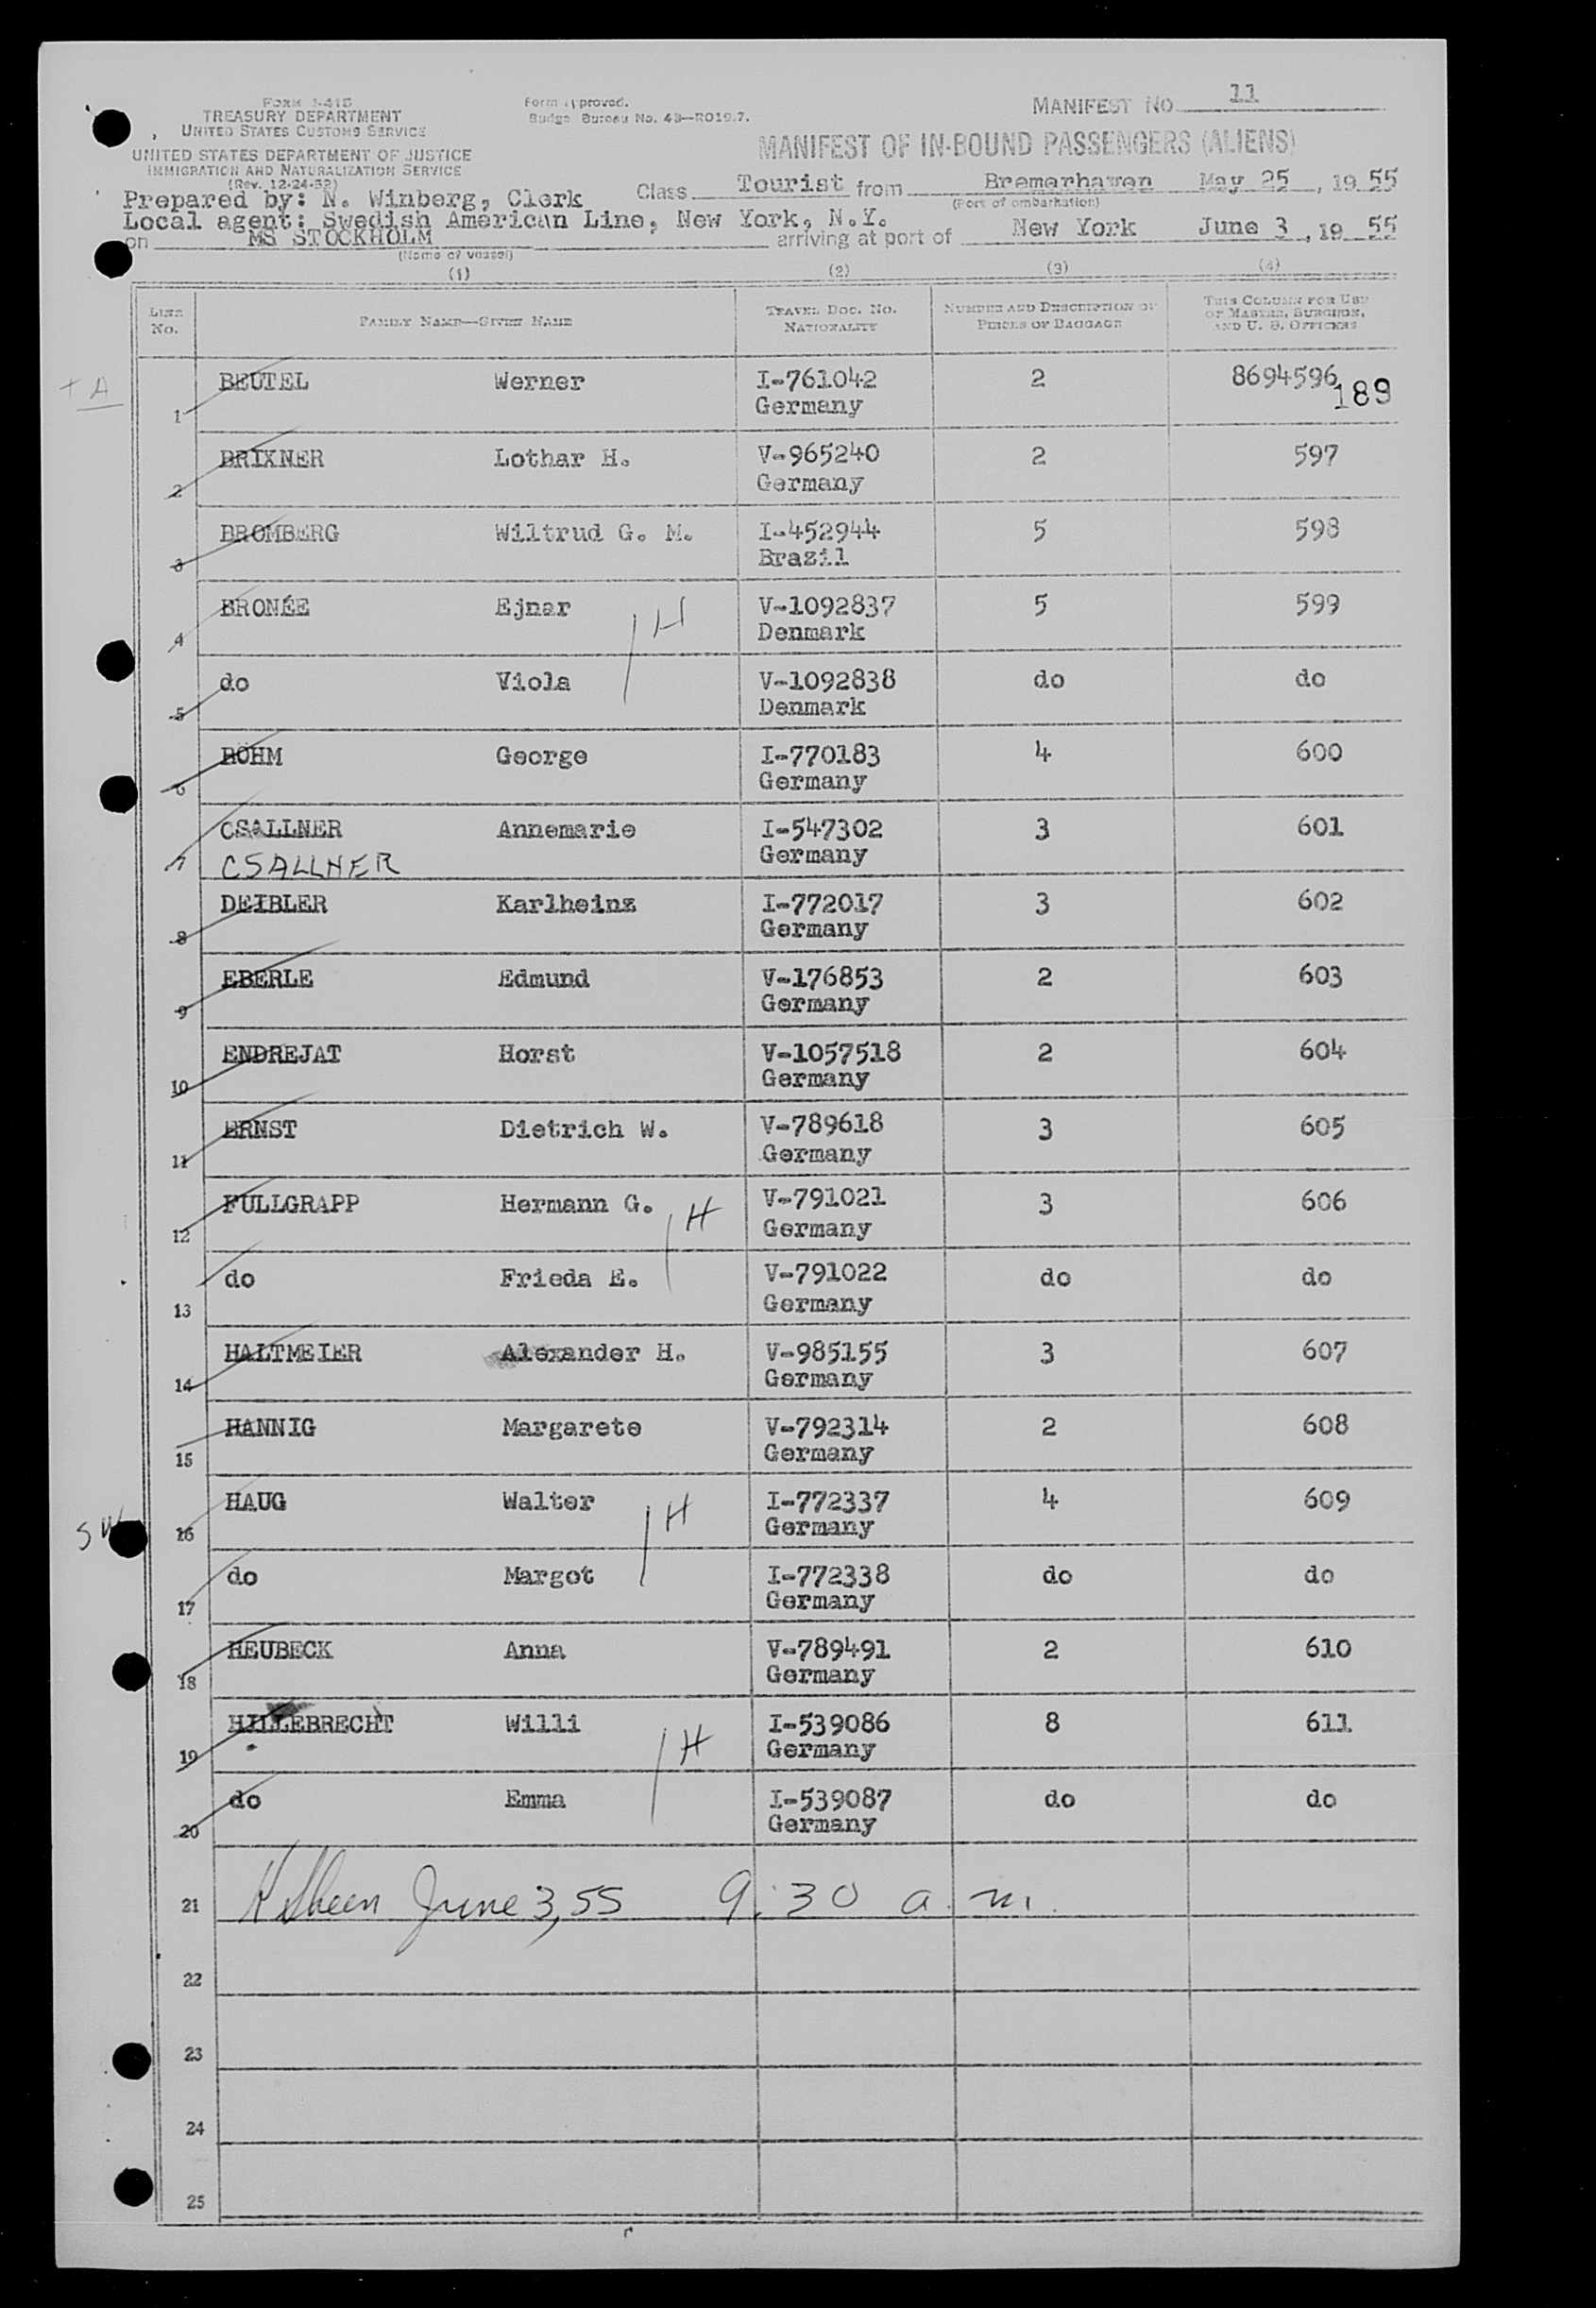 FORM I-415
TREASURY DEPARTMENT
UNITED STATES CUSTOMS SERVICE
UNITED STATES DEPARTMENT OF JUSTICE
IMMIGRATION AND NATURALIZATION SERVICE
(Rev. 12-24-52)
Form approved.
Budget Bureau No. 43—R019.7.
MANIFEST No. 11
MANIFEST OF IN-BOUND PASSENGERS (ALIENS)
Prepared by: N. Winberg, Clerk Class Tourist from Bremerhaven May 25, 1955
(Port of embarkation)
Local agent: Swedish American Line, New York, N.Y.
on MS STOCKHOLM arriving at port of New York June 3, 1955
(Name of vessel)
(1) (2) (3) (4)
LINE No. FAMILY NAME—GIVEN NAME TRAVEL DOC. NO. NATIONALITY NUMBER AND DESCRIPTION OF PIECES OF BAGGAGE THIS COLUMN FOR USE OF MASTER, SURGEON, AND U. S. OFFICERS
+ A
1 BEUTEL Werner I-761042 Germany 2 8694596 189
2 BRIXNER Lothar H. V-965240 Germany 2 597
3 BROMBERG Wiltrud G. M. I-452944 Brazil 5 598
4 BRONÉE Ejnar H V-1092837 Denmark 5 599
5 do Viola V-1092838 Denmark do do
6 BÖHM George I-770183 Germany 4 600
7 CSALLNER Annemarie I-547302 Germany 3 601
CSALLNER
8 DEIBLER Karlheinz I-772017 Germany 3 602
9 EBERLE Edmund V-176853 Germany 2 603
10 ENDREJAT Horst V-1057518 Germany 2 604
11 ERNST Dietrich W. V-789618 Germany 3 605
12 FULLGRAPP Hermann G. H V-791021 Germany 3 606
13 do Frieda E. V-791022 Germany do do
14 HALTMEIER Alexander H. V-985155 Germany 3 607
15 HANNIG Margarete V-792314 Germany 2 608
SW 16 HAUG Walter H I-772337 Germany 4 609
17 do Margot I-772338 Germany do do
18 HEUBECK Anna V-789491 Germany 2 610
19 HILLEBRECHT Willi H I-539086 Germany 8 611
20 do Emma I-539087 Germany do do
21 June 3, 55 9:30 a.m.
22
23
24
25